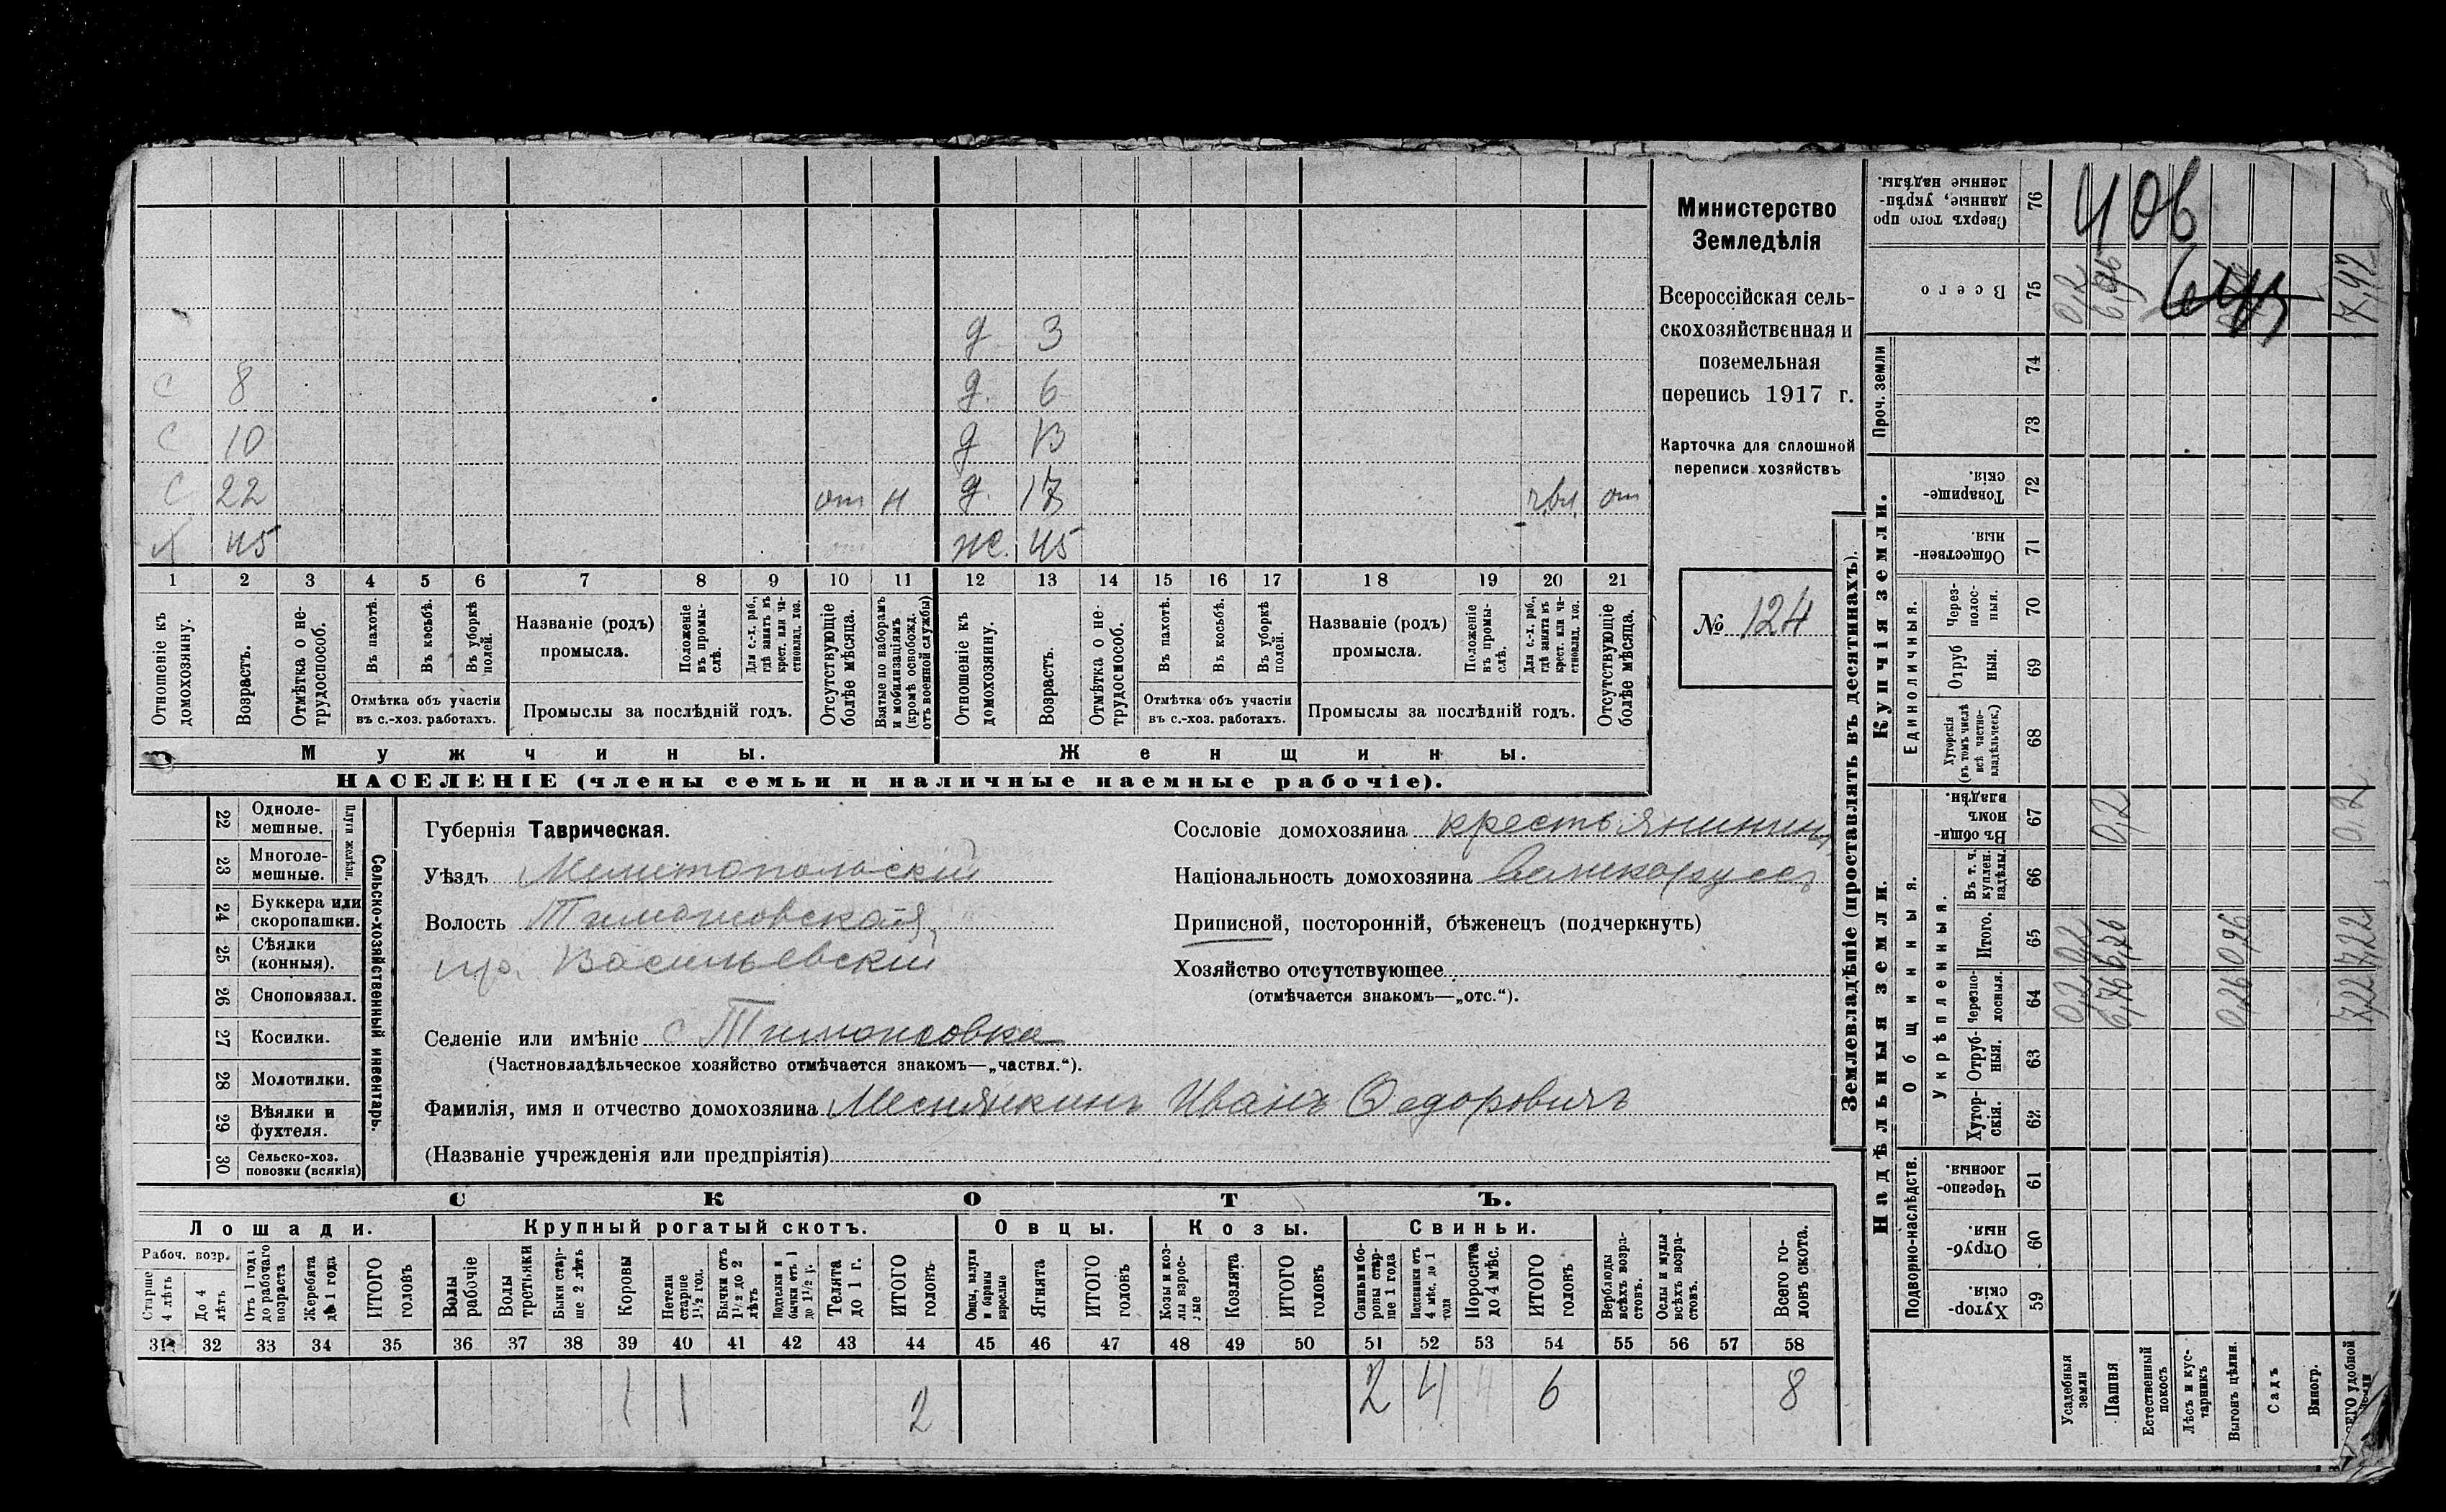 406
Министерство
Земледѣлія
Всероссійская сель-
скохозяйственная и
поземельная
перепись 1917 г.
Карточка для сплошной
переписи хозяйствъ
№ 124
д 3
с 8 д. 6
с 10 д 13
с 22 от н д. 17 от
45 же. 45
1 2 3 4 5 6 7 8 9 10 11 12 13 14 15 16 17 18 19 20 21
Отношеніе къ домохозяину.
Возрастъ.
Отмѣтка о не-трудоспособ.
Въ пахотѣ.
Въ косьбѣ.
Въ уборкѣ полей.
Отмѣтка объ участіи
въ с.-хоз. работахъ.
Названіе (родъ)
промысла.
Положеніе въ промы-слѣ.
Для с.-х. раб., гдѣ занятъ въ крест. или ча-стновлад. хоз.
Промыслы за послѣдній годъ.
Отсутствующіе болѣе мѣсяца.
Взятые по наборамъ и мобилизаціямъ (кромѣ освобожд. отъ военной службы)
Отношеніе къ домохозяину.
Возрастъ.
Отмѣтка о не-трудоспособ.
Въ пахотѣ.
Въ косьбѣ.
Въ уборкѣ полей.
Отмѣтка объ участіи
въ с.-хоз. работахъ.
Названіе (родъ)
промысла.
Положеніе въ промы-слѣ.
Для с.-х. раб., гдѣ занята въ крест. или ча-стновлад. хоз.
Промыслы за послѣдній годъ.
Отсутствующіе болѣе мѣсяца.
Мужчины. Женщины.
НАСЕЛЕНІЕ (члены семьи и наличные наемные рабочіе).
22 Одноле-мешные.
23 Многоле-мешные.
Плуги желѣзн.
24 Буккера или скоропашки.
25 Сѣялки (конныя).
26 Сноповязал.
27 Косилки.
28 Молотилки.
29 Вѣялки и фухтеля.
30 Сельско-хоз. повозки (всякія)
Сельско-хозяйственный инвентарь.
Губернія Таврическая.
Уѣздъ Мелитопольскій
Волость Тимошовская,
пр. Васильевскій
Селеніе или имѣніе с Тимошовка
(Частновладѣльческое хозяйство отмѣчается знакомъ—„частвл.“).
Фамилія, имя и отчество домохозяина Меснянкинъ Иванъ Федоровичъ
(Названіе учрежденія или предпріятія)
Сословіе домохозяина крестьянинъ
Національность домохозяина Великоруссъ
Приписной, посторонній, бѣженецъ (подчеркнуть)
Хозяйство отсутствующее
(отмѣчается знакомъ—„отс.“).
СКОТЪ.
Лошади. Крупный рогатый скотъ. Овцы. Козы. Свиньи.
Рабоч. возр.
Старше 4 лѣтъ
До 4 лѣтъ
Отъ 1 года до рабочаго возраста
Жеребята до 1 года
ИТОГО головъ
Волы рабочіе
Волы третьяки
Быки стар-ше 2 лѣтъ
Коровы
Нетели старше 1½ год.
Бычки отъ 1½ до 2 лѣтъ
Подтелки и бычки отъ 1 до 1½ г.
Телята до 1 г.
ИТОГО головъ
Овцы, валухи и бараны взрослые
Ягнята
ИТОГО головъ
Козы и коз-лы взрос-лые
Козлята
ИТОГО головъ
Свиньи и бо-ровы стар-ше 1 года
Подсвинки отъ 4 мѣс. до 1 года
Поросята до 4 мѣс.
ИТОГО головъ
Верблюды всѣхъ возра-стовъ.
Ослы и мулы всѣхъ возра-стовъ.
Всего го-ловъ скота.
31 32 33 34 35 36 37 38 39 40 41 42 43 44 45 46 47 48 49 50 51 52 53 54 55 56 57 58
1 1 2 2 4 6 8
Землевладѣніе (проставлять въ десятинахъ).
Купчія земли.
Надѣльныя земли.
Сверхъ того про данные, укрѣп-ленные надѣлы. 76
Всего 75 0,2 7,42
Проч. земли 74 73
Товарище-скія. 72
Обществен-ныя 71
Единоличныя.
Через-полос-ныя. 70
Отруб ныя. 69
Хуторскія (въ томъ числѣ всѣ частно-владѣльческ.) 68
Общинныя.
Въ общи-нномъ владѣн. 67 0,2 0,2
Укрѣпленныя.
Въ т. ч. куплен. надѣлы. 66
Итого. 65 6,76 7,22
Черезпо-лосныя. 64 0,2 6,76 0,26 7,22
Отруб-ныя. 63
Хутор-скія. 62
Подворно-наслѣдств.
Черезпо-лосныя. 61
Отруб-ныя. 60
Хутор-скія. 59
Усадебныя земли
Пашня
Естественный покосъ
Лѣсъ и кус-тарникъ
Выгонъ цѣлин.
Садъ
Виногр.